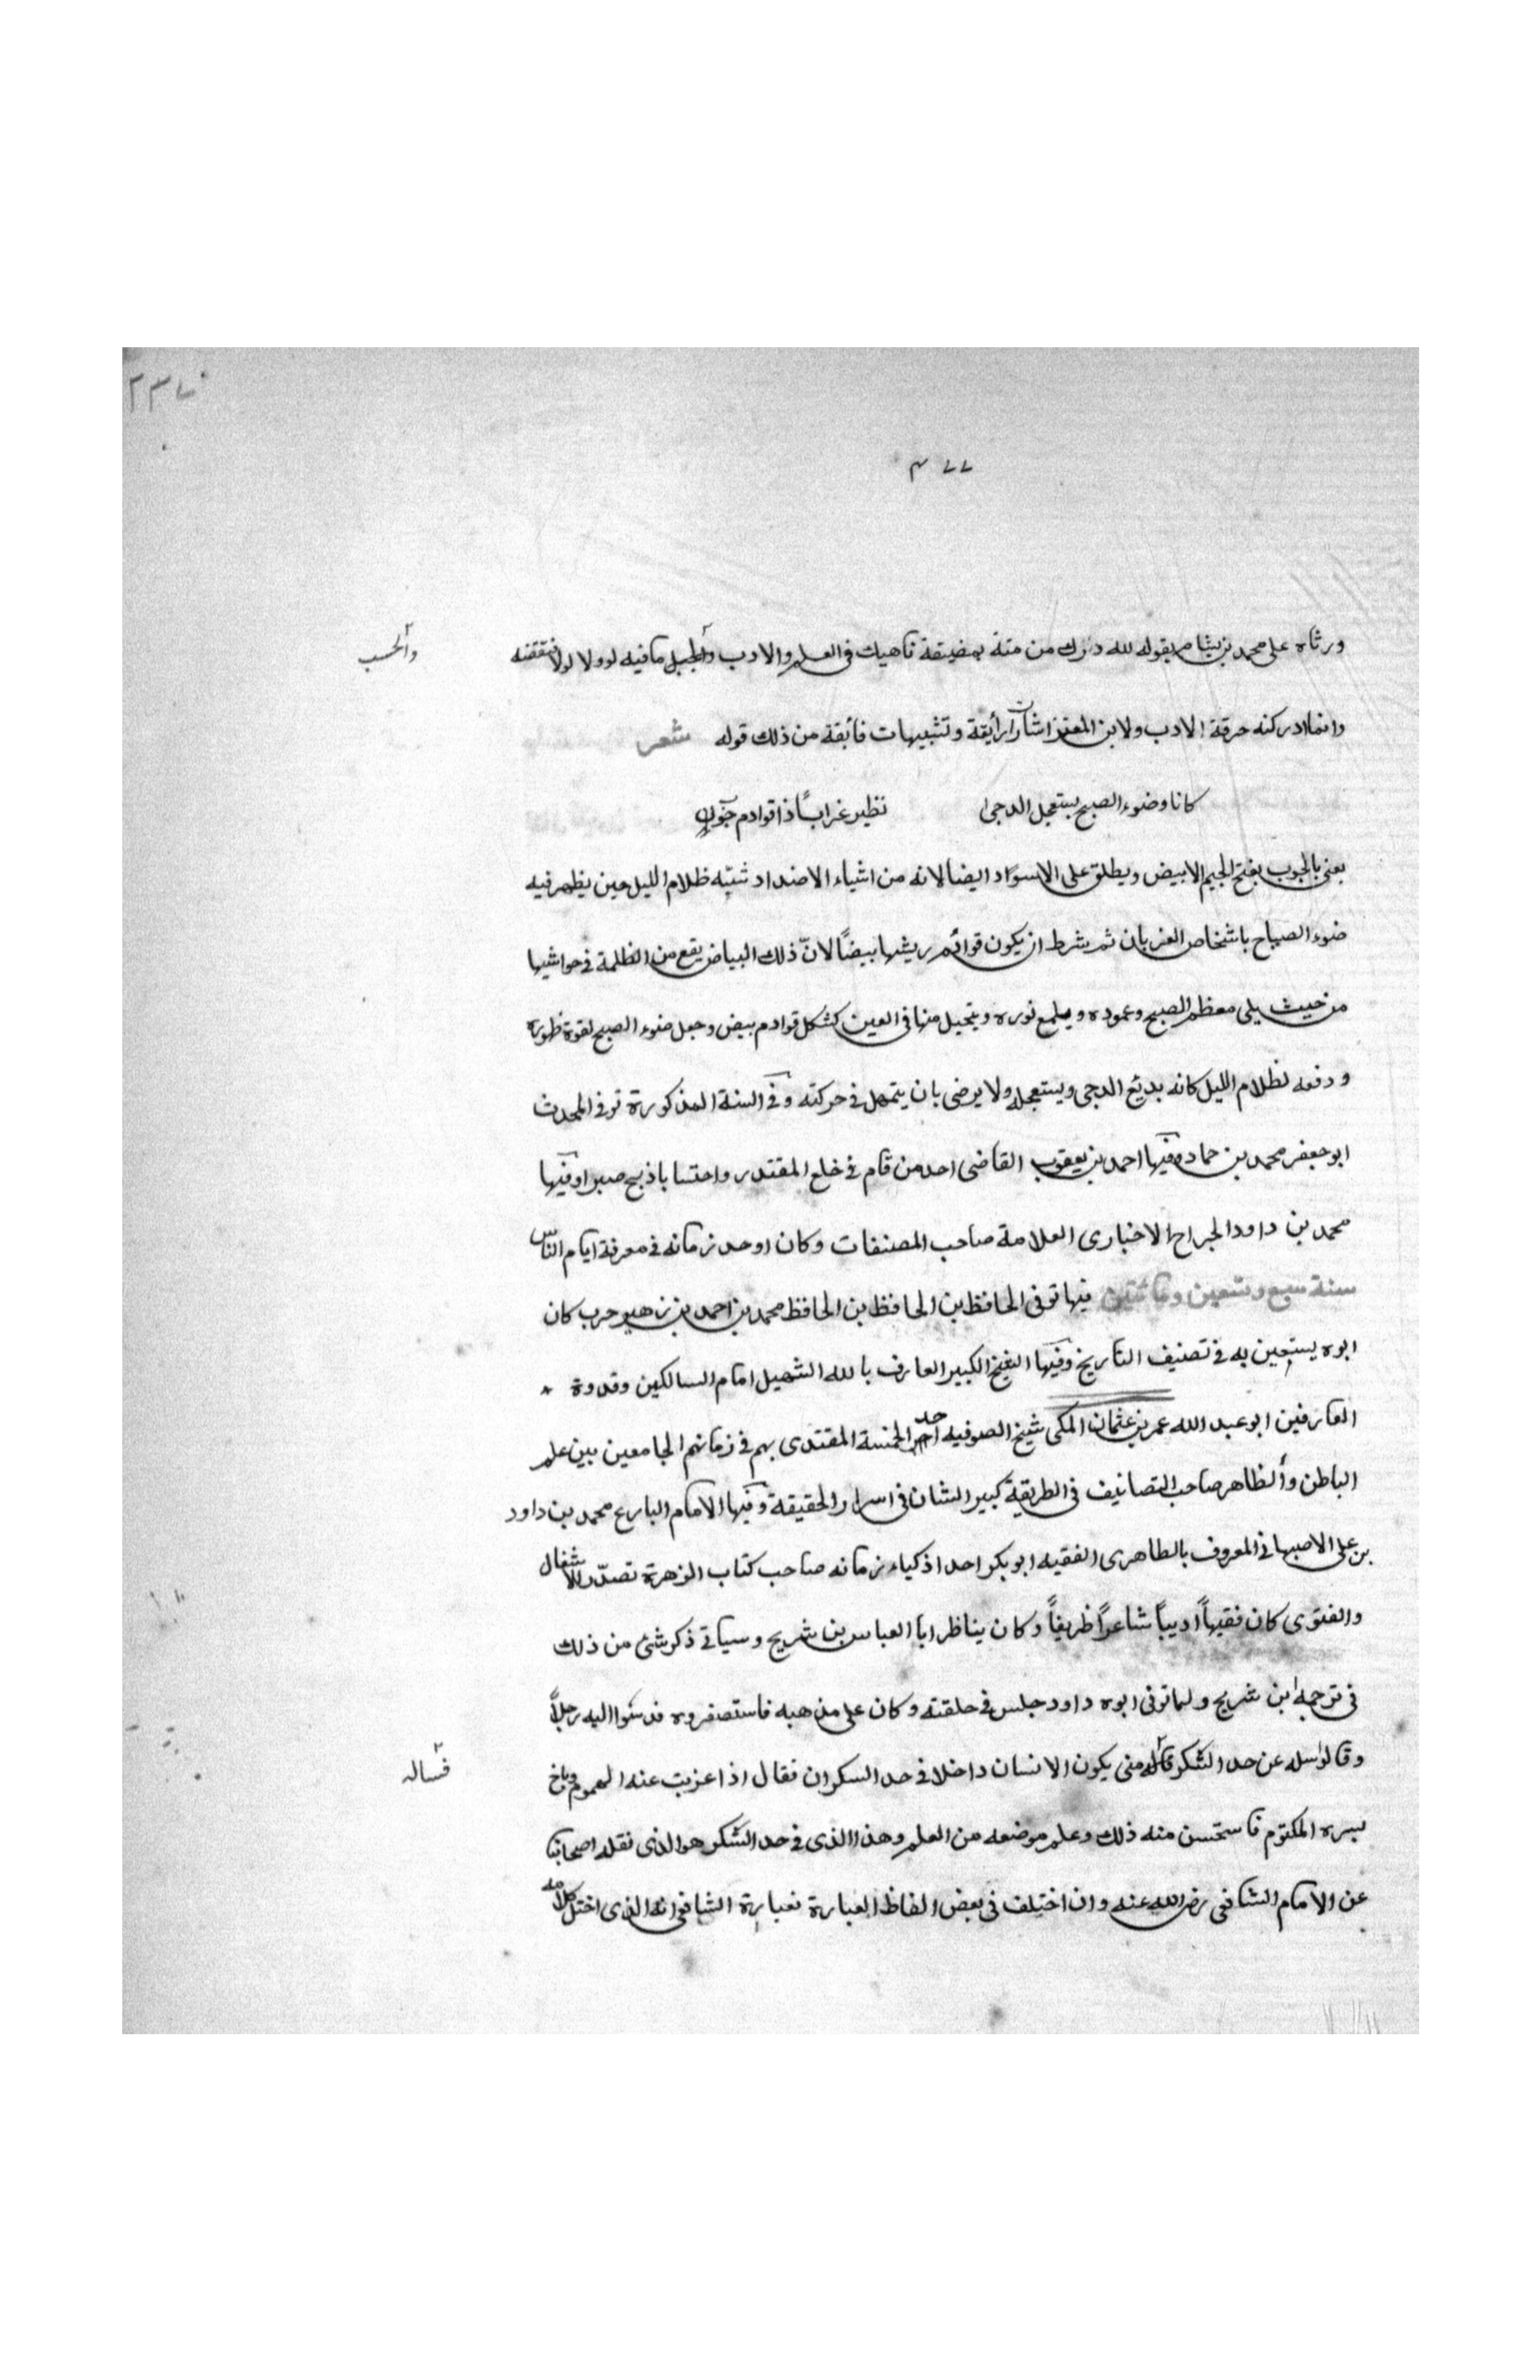 ٢٣٧
٣٧٧
ورثاه على محمد بن بشام بقوله لله درك من متة بمضيقة ناهيك فى العلم والادب والجبل ما فيه لوولا لولا فتقفنه
والحسب
وانما ادركته حرقة الادب ولابن المعتز اشارات رأيقة وتشبيهات فائقة من ذلك قوله شعر
كانا وضوء الصبح يستعجل الدجى نظير غرابًا ذا قوادم جون
يعنى بالجوب بفتح الجيم الابيض ويطلق على الاسوَاد ايضا لانه من اشياء الاضداد شبّه ظلام الليل حين يظهر فيه
ضوء الصباح باشخاص الغربان ثم شرط ان يكون قوائم ريشها بيضًا لانّ ذلك البياض يقع من الظلمة فى حواشيها
من حيث يلى معظم الصبح وعموده ويلمع نوره ويتخيل منها فى العين كشكل قوادم بيض وجعل ضوء الصبح لقوة ظهوره
ودفعه لظلام الليل كانه يدئع الدجى ويستعجله ولا يرضى بان يتمهل فى حركته وفى السنة المذكورة توفى المحدث
ابو جعفر محمد بن حماد وفيها احمد بن يعقوب القاضى احد من قام فى خلع المقتدر واحتسابا ذبح صبرا وفيها
محمد بن داود الجراح الاخبارى العلامة صاحب المصنفات وكان اوحد زمانه فى معرفة ايام الناس
سنة سبع وتسعين ومائتين فيها توفى الحافظ بن الحافظ بن الحافظ محمد بن احمد بن زهير حرب كان
ابوه يستعين به فى تصنيف التاريخ وفيها الشيخ الكبير العارف بالله الشهيل امام السالكين وقدوة
العارفين ابو عبد الله عمر بن عثمان المكى شيخ الصوفيه احد الخمسة المقتدى بهم فى زمانهم الجامعين بين علم
الباطن والظاهر صاحب التصانيف فى الطريقة كبير الشان فى اسرار الحقيقة وفيها الامام البارع محمد بن داود
بن على الاصبهانى المعروف بالظاهرى الفقيه ابو بكر احد اذكياء زمانه صاحب كتاب الزهرة تصدّر للاشغال
والفتوى كان فقيهاً اديباً شاعراً ظريفاً وكان يناظر ابا العباس بن شريح وسياتى ذكر شئ من ذلك
فى ترجمة ابن شريح ولما توفى ابوه داود جلس فى حلقته وكان على مذهبه فاستصغروه فدسّوا اليه رجلاً
وقالوا سله عن حد السكر قاله متى يكون الانسان داخلا فى حد السكران فقال اذا عزبت عنه الهموم وباخ
فساله
بسره المكتوم فاستحسن منه ذلك وعلم موضعه من العلم وهذا الذى فى حد السكر هو الذى نقله اصحابنا
عن الامام الشافى رضى الله عنه وان اختلف فى بعض الفاظ العبارة فعبارة الشافى انه الذى اختل كلامه